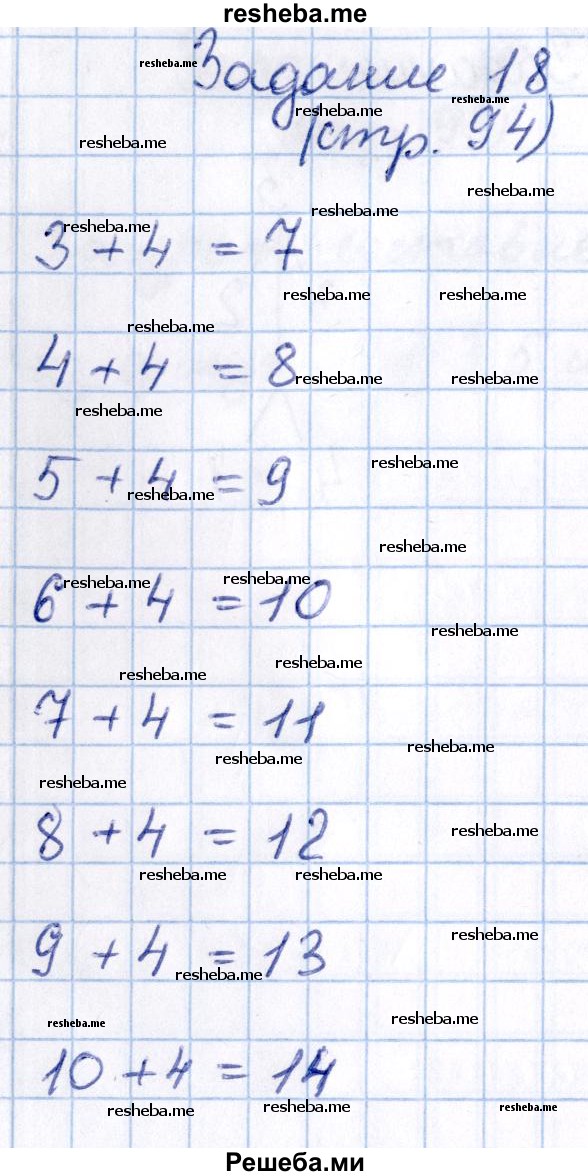 resheba.me
Задание 18
(стр. 94)
3 + 4 = 7
4 + 4 = 8
5 + 4 = 9
6 + 4 = 10
7 + 4 = 11
8 + 4 = 12
9 + 4 = 13
10 + 4 = 14
Решеба.ми